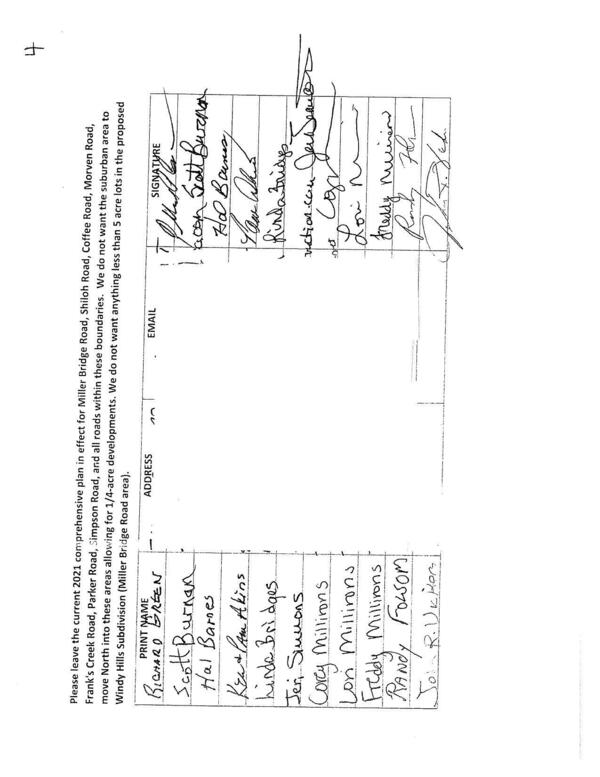 4
Please leave the current 2021 comprehensive plan in effect for Miller Bridge Road, Shiloh Road, Coffee Road, Morven Road,
Frank's Creek Road, Parker Road, Simpson Road, and all roads within these boundaries. We do not want the suburban area to
move North into these areas allowing for 1/4-acre developments. We do not want anything less than 5 acre lots in the proposed
Windy Hills Subdivision (Miller Bridge Road area).
PRINT NAME ADDRESS EMAIL SIGNATURE
RICHARD GREEN
Scott Burnan Scott Burnan
Hal Barnes Hal Barnes
Ken & Pam Akins Pam Akins
Linda Bridges Linda Bridges
Jeri Simmons Jeri Simmons
Corey Millirons
Lori Millirons Lori
Freddy Millirons Freddy Millirons
RANDY FOLSOM Randy
John R.